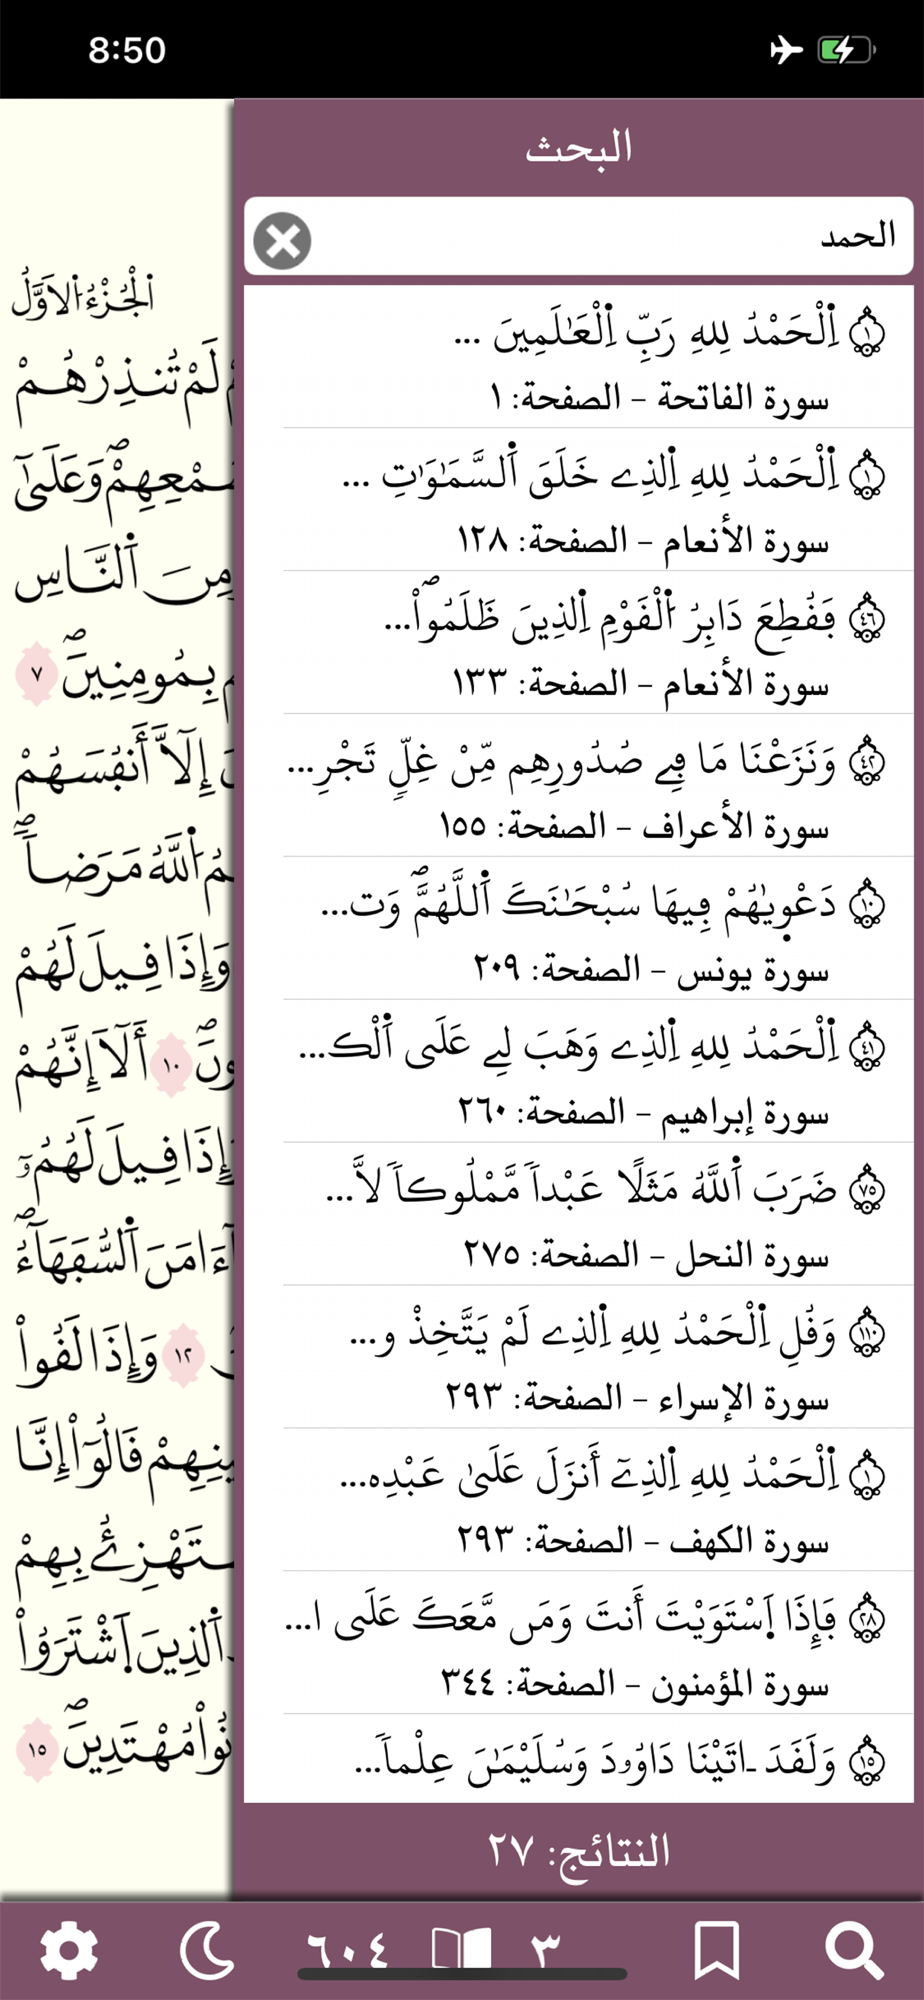 8:50
البحث
الحمد
١ اِ۬لْحَمْدُ لِلهِ رَبِّ اِ۬لْعَٰلَمِينَ ...
سورة الفاتحة - الصفحة: ١
١ اِ۬لْحَمْدُ لِلهِ اِ۬لذِے خَلَقَ اَ۬لسَّمَٰوَٰتِ ...
سورة الأنعام - الصفحة: ١٢٨
٤٦ فَقُطِعَ دَابِرُ اُ۬لْقَوْمِ اِ۬لذِينَ ظَلَمُواْۖ...
سورة الأنعام - الصفحة: ١٣٣
٤٢ وَنَزَعْنَا مَا فِے صُدُورِهِم مِّنْ غِلّٖ تَجْرِ...
سورة الأعراف - الصفحة: ١٥٥
١٠ دَعْو۪يٰهُمْ فِيهَا سُبْحَٰنَكَ اَ۬للَّهُمَّۖ وَت...
سورة يونس - الصفحة: ٢٠٩
٤١ اِ۬لْحَمْدُ لِلهِ اِ۬لذِے وَهَبَ لِے عَلَى اَ۬لْك...
سورة إبراهيم - الصفحة: ٢٦٠
٧٥ ضَرَبَ اَ۬للَّهُ مَثَلًا عَبْداٗ مَّمْلُوكاٗ لاَّ...
سورة النحل - الصفحة: ٢٧٥
١١٠ وَقُلِ اِ۬لْحَمْدُ لِلهِ اِ۬لذِے لَمْ يَتَّخِذْ و...
سورة الإسراء - الصفحة: ٢٩٣
١ اِ۬لْحَمْدُ لِلهِ اِ۬لذِےٓ أَنزَلَ عَلَىٰ عَبْدِه...
سورة الكهف - الصفحة: ٢٩٣
٢٨ فَإِذَا اَ۪سْتَوَيْتَ أَنتَ وَمَن مَّعَكَ عَلَى ا...
سورة المؤمنون - الصفحة: ٣٤٤
١٥ وَلَقَدَ اٰتَيْنَا دَاوُۥدَ وَسُلَيْمَٰنَ عِلْماٗ...
النتائج: ٢٧
٣
٦٠٤
اَ۬لْجُزْءُ اُ۬لَاوَّلُ
لَمْ تُنذِرْهُمْ
وَعَلَىٰٓ
مِنَ اَ۬لنَّاسِ
بِمُومِنِينَۖ ٧
إِلَّآ أَنفُسَهُمْ
اُ۬للَّهُ مَرَضاٗۖ
وَإِذَا قِيلَ لَهُمْ
١٠ أَلَآ إِنَّهُمْ
قِيلَ لَهُمُۥٓ
ءَامَنَ اَ۬لسُّفَهَآءُۖ
١٢ وَإِذَا لَقُواْ
قَالُوٓاْ إِنَّا
بِهِمْ
اَ۬لذِينَ اَ۪شْتَرَوُاْ
مُهْتَدِينَۖ ١٥